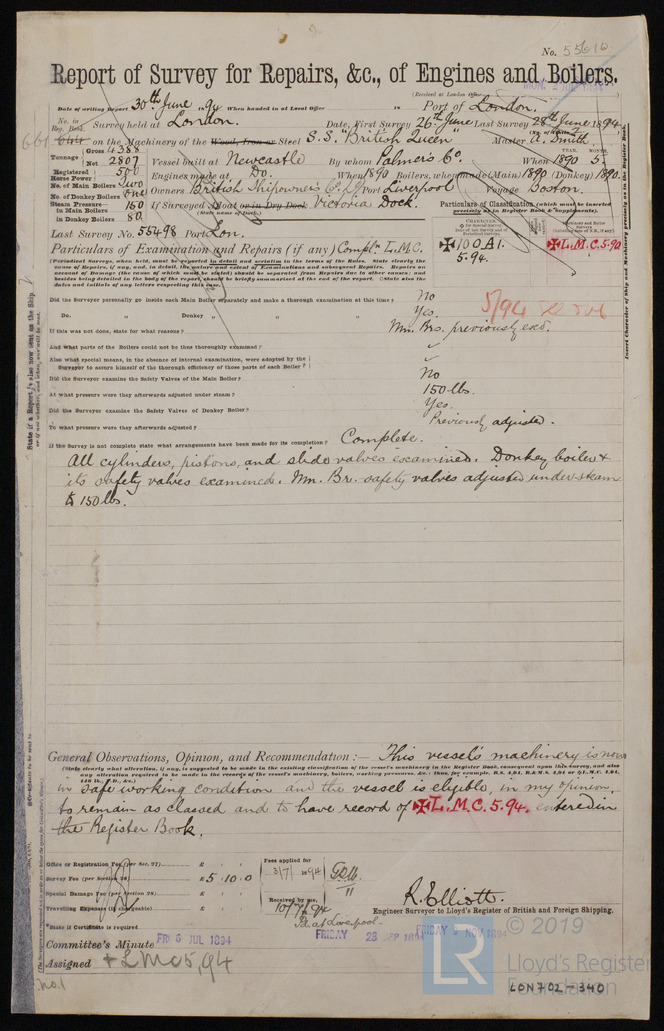 No. 55610
Report of Survey for Repairs, &c., of Engines and Boilers.
(Received at London Office
Date of writing Report 30th June 1894 When handed in at Local Office 18 Port of London.
No. in Reg. Book. Survey held at London. Date, First Survey 26th June Last Survey 28th June 1894
on the Machinery of the Wood, Iron or Steel S.S. "British Queen" Master A. Smith
Tonnage Gross 4388
Net 2807 Vessel built at Newcastle By whom Palmer's Co. When 1890 5
Registered Horse Power 500 Engines made at Do. When 1890 Boilers, when made (Main) 1890 (Donkey) 1890
No. of Main Boilers Two
No. of Donkey Boilers One Owners British Shipowners Co. Ld Port Liverpool Voyage Boston.
Steam Pressure in Main Boilers 150 If Surveyed Afloat or in Dry Dock Victoria Dock.
(State name of Dock.)
in Donkey Boilers 80
Particulars of Classification (which must be inserted precisely as in Register Book & Supplements).
Last Survey No. 55498 Port Lon.
100A1. 5.94.
L.M.C. 5.90
Particulars of Examination and Repairs (if any) Compl. L.M.C.
(Periodical Surveys, when held, must be reported in detail and seriatim in the terms of the Rules. State clearly the
Did the Surveyor personally go inside each Main Boiler separately and make a thorough examination at this time? No
Do. " Donkey " " " Yes.
5/94
If this was not done, state for what reasons? Mn. Brs. previously exd.
And what parts of the Boilers could not be thus thoroughly examined?
Also what special means, in the absence of internal examination, were adopted by the
Surveyor to assure himself of the thorough efficiency of those parts of each Boiler?
Did the Surveyor examine the Safety Valves of the Main Boiler? No
At what pressure were they afterwards adjusted under steam? 150 lbs.
Did the Surveyor examine the Safety Valves of Donkey Boiler? Yes.
To what pressure were they afterwards adjusted? Previously adjusted.
If the Survey is not complete state what arrangements have been made for its completion? Complete.
All cylinders, pistons, and slide valves examined. Donkey boiler &
its safety valves examined. Mn. Br. safety valves adjusted under steam
to 150 lbs.
General Observations, Opinion, and Recommendation:— This vessel's machinery is now
in safe working condition and the vessel is eligible, in my opinion,
to remain as classed and to have record of L.M.C. 5.94. entered in
the Register Book.
Office or Registration Fee (per Sec. 27) £
Survey Fee (per Section 28) £ 5.10.0
Special Damage Fee (per Section 28) £
Travelling Expenses (if chargeable) £
Fees applied for
3/7 1894
Received by me,
10/7/94
Pd at Liverpool
R. Elliott.
Engineer Surveyor to Lloyd's Register of British and Foreign Shipping.
State if Certificate is required
Committee's Minute FRI 6 JUL 1894 FRIDAY 28 SEP 1894 FRIDAY NOV 1894
Assigned + LMC 5,94
No. 1
© 2019
LR
Lloyd's Register Foundation
LON702-340